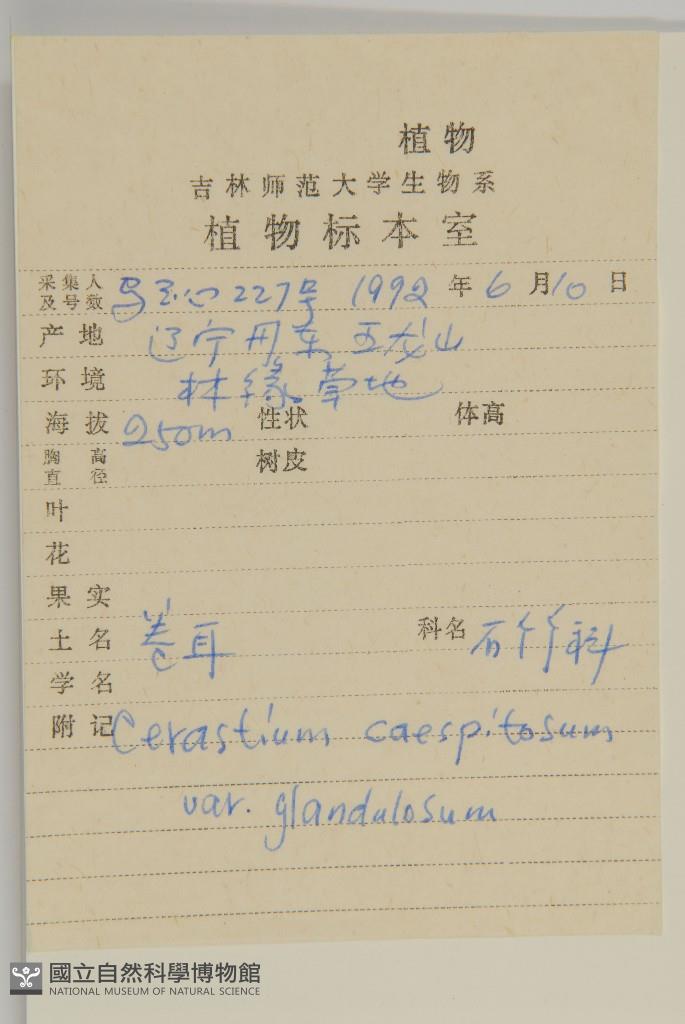 植物
吉林师范大学生物系
植物标本室
采集人及号数 227号 1992年6月10日
产地 辽宁丹东五龙山
环境 林缘草地
海拔 250m 性状 体高
胸高直径 树皮
叶
花
果实
土名 卷耳 科名 石竹科
学名
附记 Cerastium caespitosum
var. glandulosum
國立自然科學博物館
NATIONAL MUSEUM OF NATURAL SCIENCE